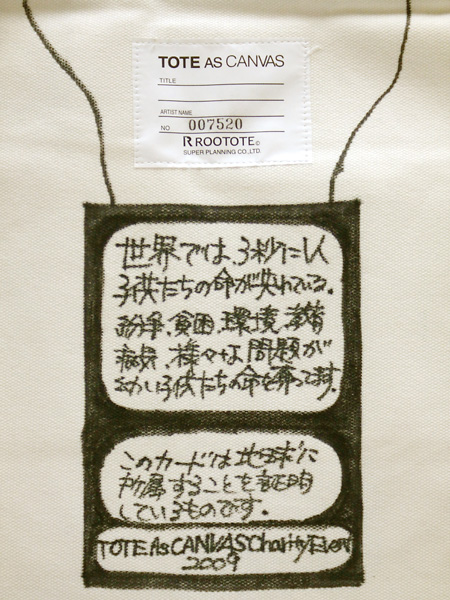 TOTE AS CANVAS
TITLE
ARTIST NAME
NO 007520
ROOTOTE
SUPER PLANNING CO.,LTD.
世界では、3秒に1人
子供たちの命が失われている。
紛争、貧困、環境、教育
病気、様々な問題が
幼い子供たちの命を奪ってます。
このカードは地球に
所属することを証明
しているものです。
TOTE As CANVAS Charity Event
2009